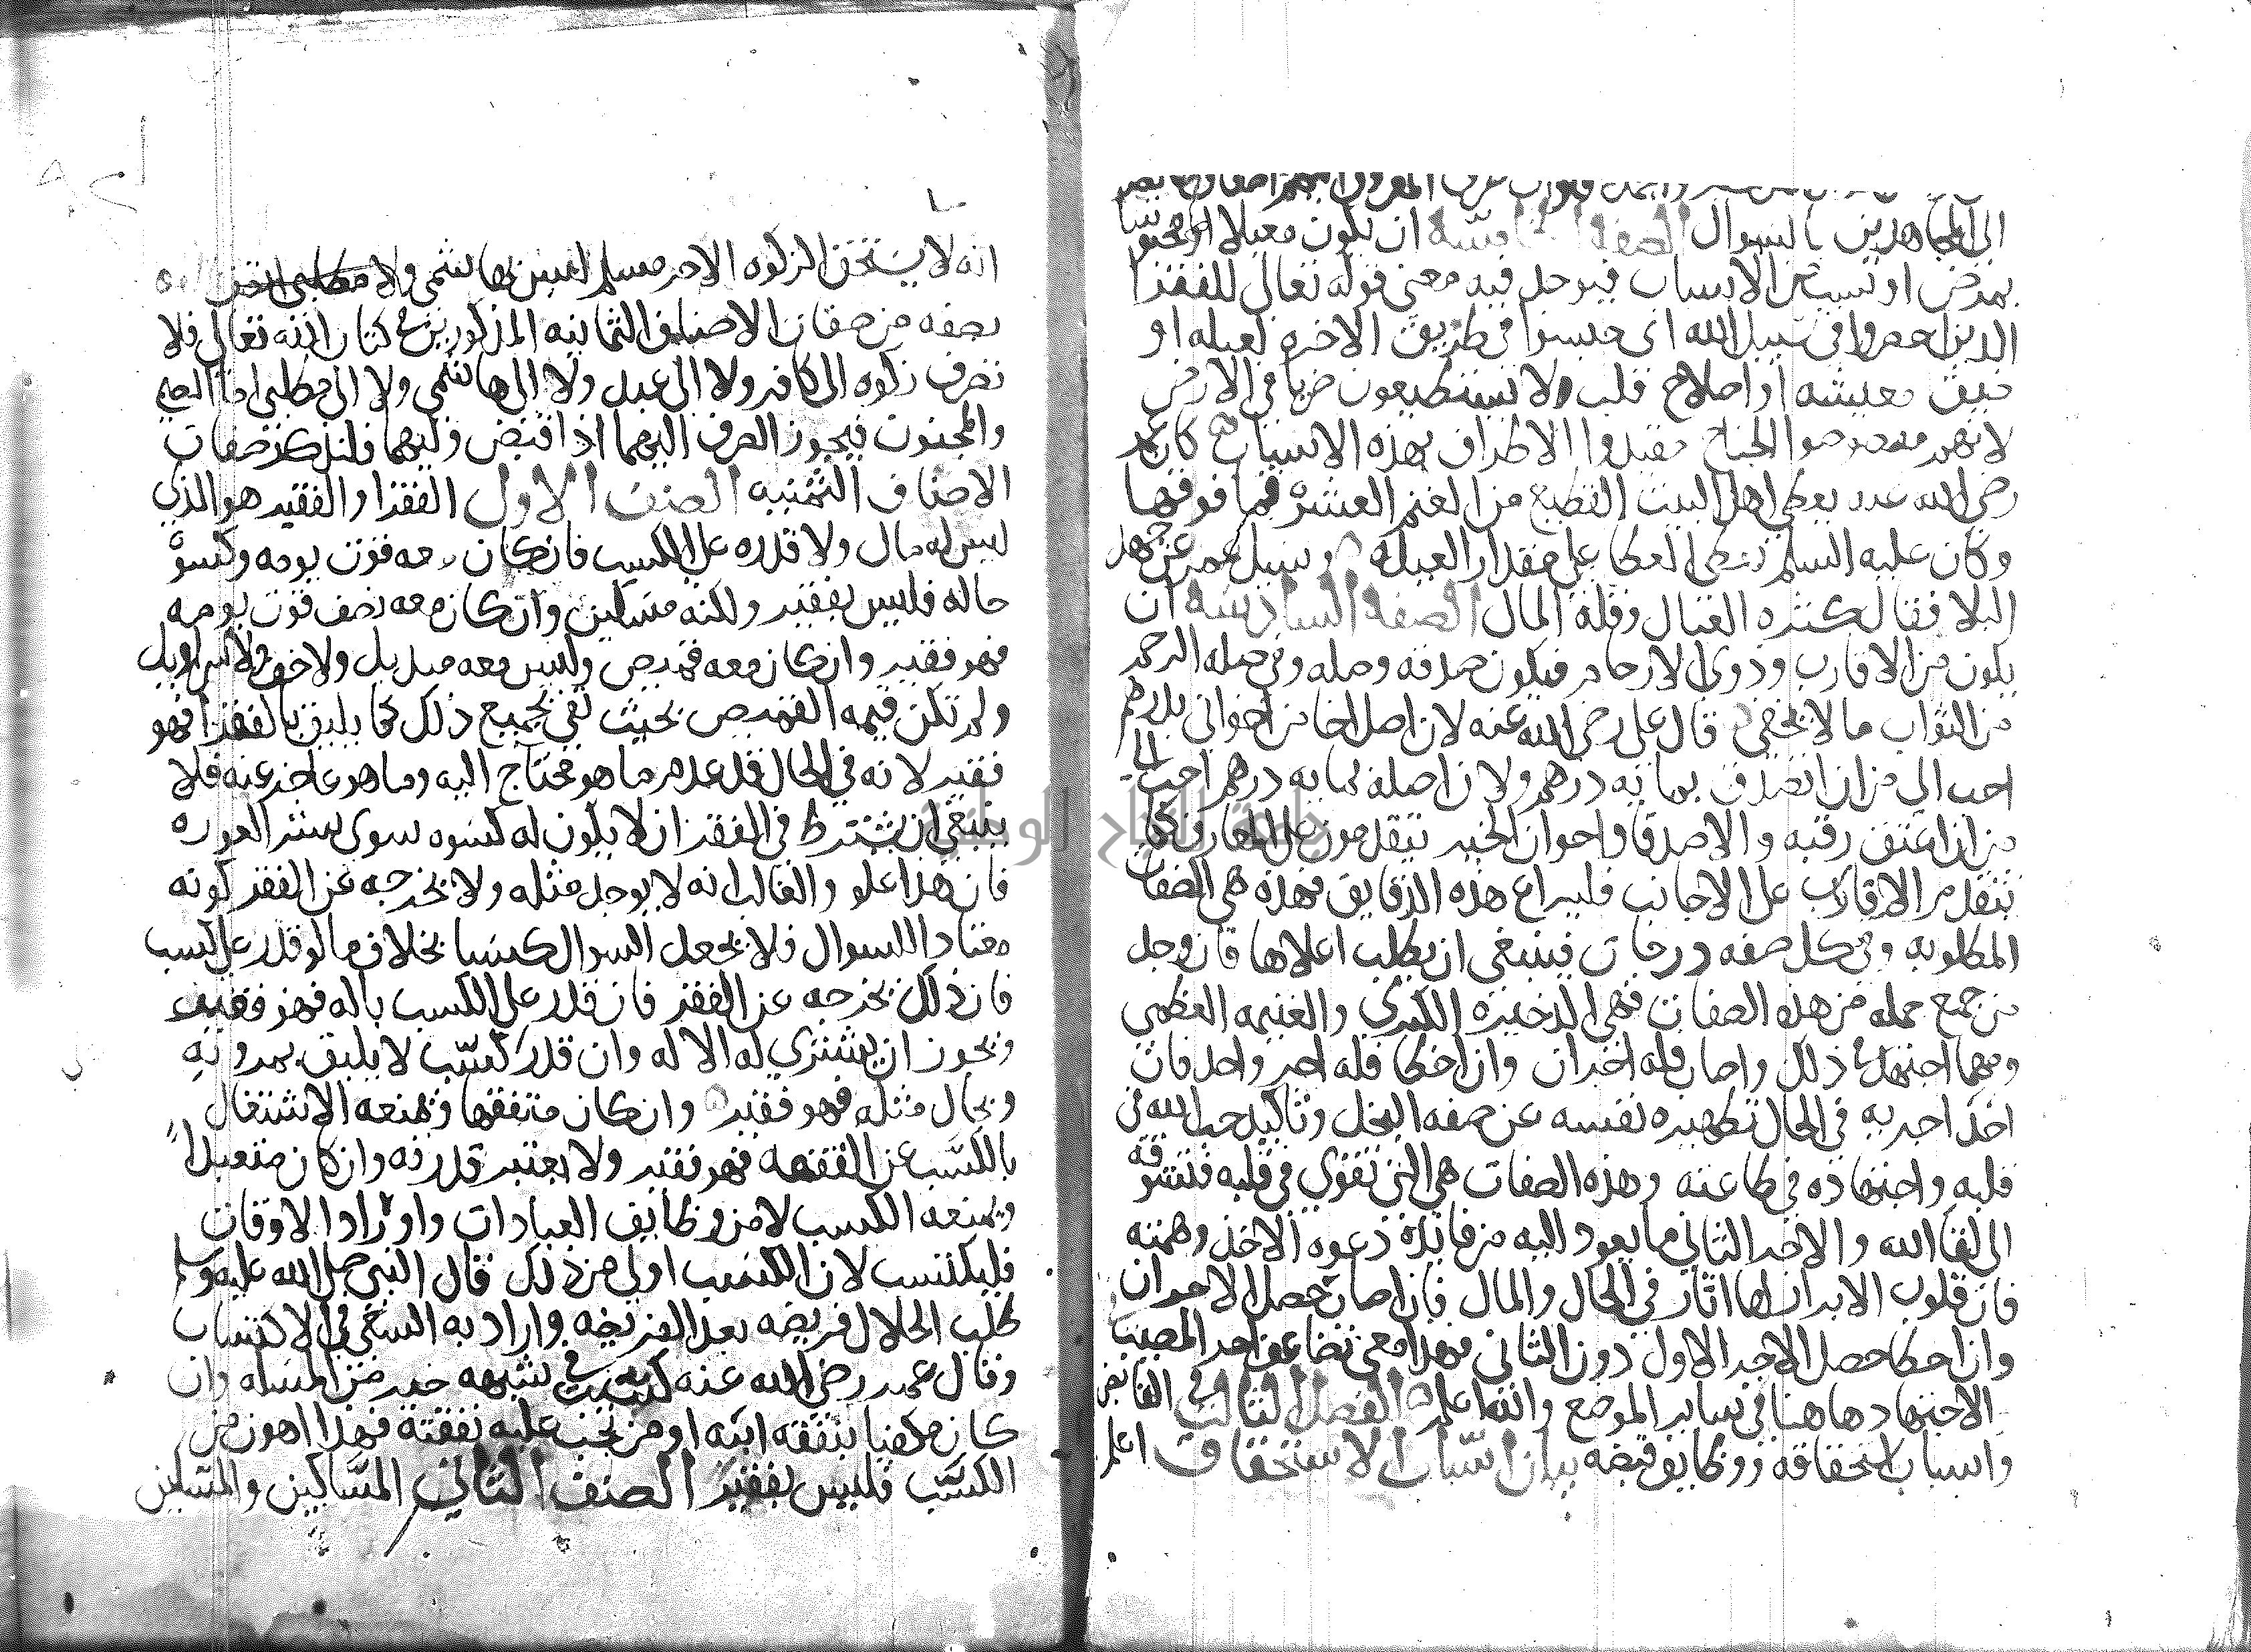 الى المجاهدين بالسوال الصفة الخامسة ان يكون معيلا او محبوسا
بمرض او سبب من الاسباب فيوجد فيه معنى قوله تعالى للفقرا
الذين احصروا في سبيل الله اى حبسوا في طريق الاخره لعيله او
ضيق معيشه او اصلاح قلب لا يستطيعون ضربا في الارض
لانهم مقصوصوا الجناح مقيدوا الاطراف بهذه الاسباب كان عمر
رضى الله عنه يعطي اهل البيت القطيع من الغنم العشرة فما فوقها
وكان عليه السلم يعطى العطا على مقدار العيله وسيل عمر عن جهد
البلا فقال كثره العيال وقلة المال الصفة السادسة ان
يكون من الاقارب وذوى الارحام فيكون صدقه وصله وفي صله الرحم
من الثواب ما لا يخفى قال على رضى الله عنه لان اصل اخا من اخواني بدرهم
احب الي من ان اتصدق بمايه درهم ولان اصله بمايه درهم احب الي
من ان اعتق رقبه والاصدقا واخوان الخير يتقدمون على المعارف كما
يتقدم الاقارب على الاجانب فليراع هذه الدقايق فهذه هي الصفات
المطلوبه وفي كل صفه درجات فينبغي ان يطلب اعلاها فان وجد
من جمع جمله من هذه الصفات فهي الدخيره الكبرى والغنيمه العظمي
ومهما اجتهد في ذلك واصاب فله اجران وان اخطا فله اجر واحد فان
احد اجريه في الحال تطهيره نفسه عن صفه البخل وتاكيد حب الله في
قلبه واجتهاده في طاعته وهذه الصفات هي التي تقوي في قلبه فتشوقه
الى لقا الله والاجر الثاني ما يعود اليه من فايدة دعوه الاخذ وهمته
فان قلوب الابرار لها اثار في الحال والمال فان اصاب حصل الامران
وان اخطا حصل الاجر الاول دون الثاني فهذا معنى تضاعف اجر المصيب
الاجتهاد هاهنا في ساير المواضع والله اعلم الفصل الثالث في القابض
واسباب استحقاقه ووظايف قبضه بيان اسباب الاستحقاق اعلم
انه لا يستحق الزكوه الا حر مسلم ليس بهاشمي ولا مطلبي اتصف
بصفه من صفات الاصناف الثمانيه المذكورين في كتاب الله تعالى فلا
تصرف زكوه الى كافر ولا الى عبد ولا الى هاشمي ولا الى مطلبي اما الصبي
والمجنون فيجوز الصرف اليهما اذا قبض وليهما فلنذكر صفات
الاصناف الثمنيه الصنف الاول الفقرا والفقير هو الذي
ليس له مال ولا قدره على الكسب فان كان معه قوت يومه وكسوة
حاله فليس بفقير ولكنه مسكين وان كان معه نصف قوت يومه
فهو فقير وان كان معه قميص وليس معه منديل ولا خف ولا سراويل
ولم تكن قيمه القميص بحيث تفي بجميع ذلك كما يليق بالفقرا فهو
فقير لانه في الحال قد عدم ما هو محتاج اليه وما هو عاجز عنه فلا
ينبغي ان يشترط في الفقر ان لا يكون له كسوه سوى ستر العوره
فان هذا غلو والغالب انه لا يوجد مثله ولا يخرجه عن الفقر كونه
معتادا للسوال فلا يجعل السوال كسبا بخلاف ما لو قدر على كسب
فان ذلك يخرجه عن الفقر فان قدر على الكسب باله فهو فقير
ويجوز ان يشتري له الاله وان قدر كسب لا يليق بمروته
وبحال مثله فهو فقير وان كان متفقها ويمنعه الاشتغال
بالكسب عن الفقه فهو فقير ولا يعتبر قدرته وان كان متعبدا
ويمنعه الكسب لا من وظايف العبادات واورادا الاوقات
فليكتسب لان الكسب اولى من ذلك قال النبي صلى الله عليه وسلم
طلب الحلال فريضه بعد الفريضه واراد به السعى في الاكتساب
وقال عمر رضى الله عنه كسب في شبهه خير من المسله وان
كان مكفيا بنفقه ابيه او من تجب عليه نفقته فهذا اهون من
الكسب فليس بفقير الصنف الثاني المساكين والمسكين